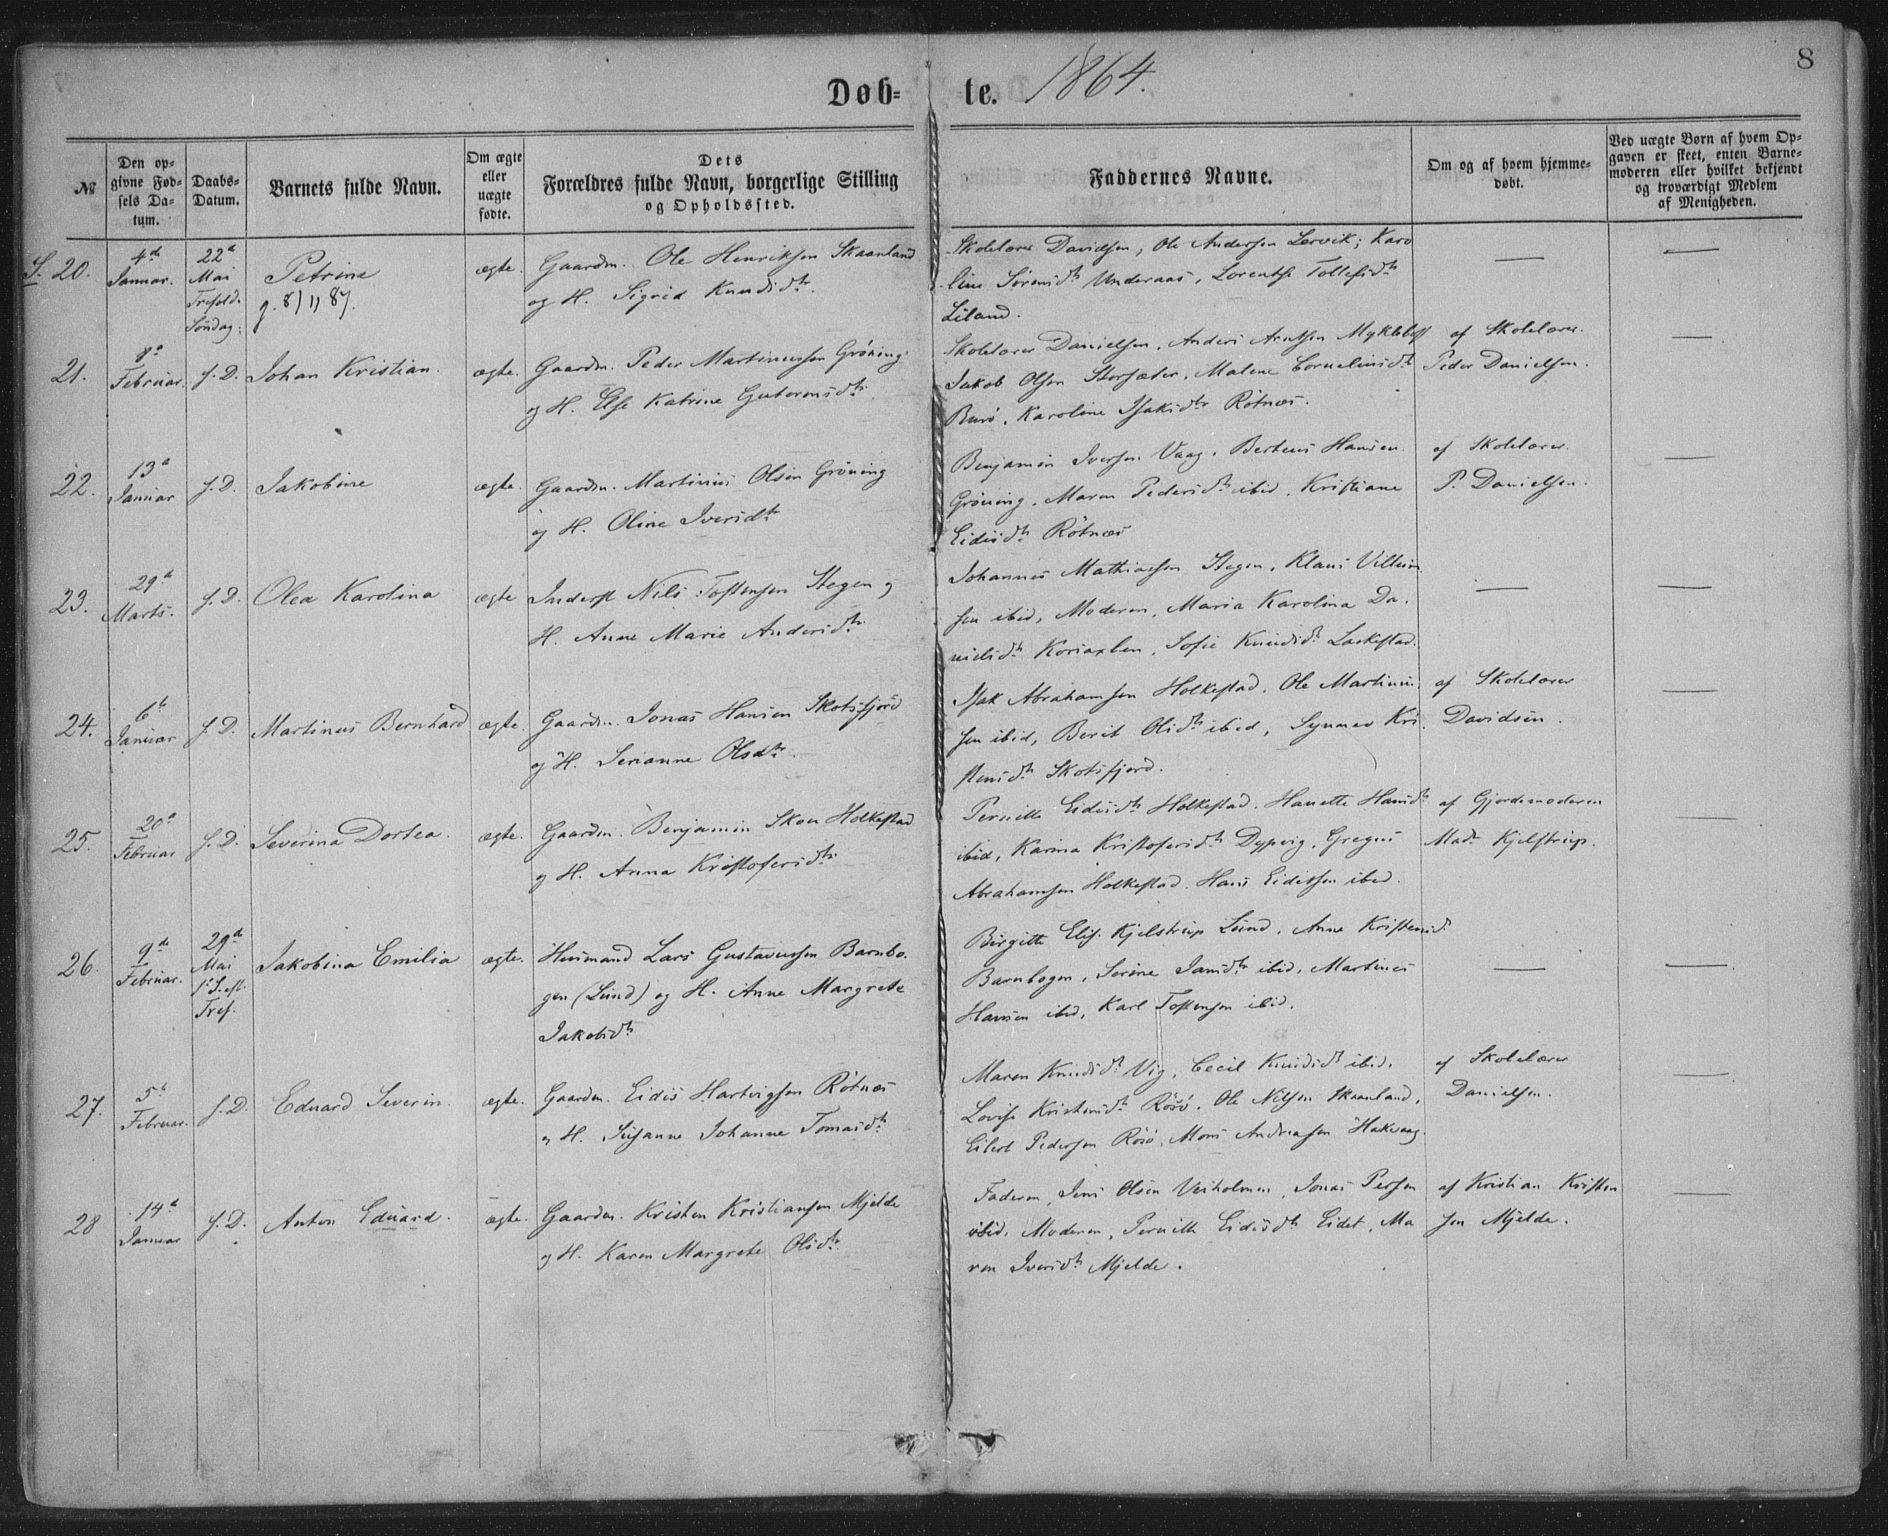 8
Døb- te. 1864.
№
Den opgivne Fødsels Datum.
Daabs-Datum.
Barnets fulde Navn.
Om ægte eller uægte fødte.
Dets Forældres fulde Navn, borgerlige Stilling og Opholdssted.
Faddernes Navne.
Om og af hvem hjemmedøbt.
Ved uægte Børn af hvem Opgaven er skeet, enten Barnemoderen eller hvilket bekjendt og troværdigt Medlem af Menigheden.
S. 20. 4de Januar. 22d Mai Trefold. Søndag. Petrine g. 8/11 87. ægte.
Gaardm. Ole Henriksen Skaanland
og H. Sigrid Knudsdtr.
Skolelærer Davidsen, Ole Andersen Lervik, Karo
line Sørensdtr Underaas, Lorentse Tollefsdtr
Liland.
21. 8d Februar. s. D. Johan Kristian. ægte.
Gaardm. Peder Martinussen Grøning
og H. Else Katrine Guttormsdtr.
Skolelærer Danielsen, Anders Arntsen Myklebost
Jakob Olsen Storsæter, Malene Corneliusdtr
Burø, Karoline Isaksdtr Rötnæs.
af Skolelærer
Peder Danielsen.
22. 13d Januar s. D. Jakobine ægte.
Gaardm. Martinus Olsen Grøning
og H. Oline Iversdtr
Benjamin Iversen Vaag, Berteus Hansen
Grøning, Maren Pedersdtr ibid, Kristiane
Eidisdtr Rötnæs
af Skolelærer
P. Danielsen.
23. 29d Marts. s. D. Olea Karolina ægte
Inderst Nils Tostensen Stegen og
H. Anne Marie Andersdtr
Johannes Mathiassen Stegen, Klaus Villum
sen ibid, Moderen, Maria Karolina Da.
nielsdtr Korsaxlen, Sofie Knudsdtr Laskestad.
24. 6te Januar s. D. Martinus Bernhard ægte.
Gaardm. Jonas Hansen Skotsfjord
og H. Serianne Olsdtr.
Isak Abrahamsen Holkestad, Ole Martinus
sen ibid, Berit Olsdtr ibid, Synnev Kri
stensdtr Skotsfjord.
af Skolelærer
Davidsen.
25. 20d Februar s. D. Severina Dortea. ægte.
Gaardm. Benjamin Skou Holkestad
og H. Anna Kristofersdtr
Pernille Eidisdtr Holkestad, Hanette Hansdtr
ibid, Karina Kristofersdtr Dypvig, Gregus
Abrahamsen Holkestad, Hans Eidissen ibid.
af Gjordemoderen
Madm Kjelstrup.
26. 9de Februar. 29d Mai 1ste S. eft. Tref. Jakobina Emilia ægte.
Huusmand Lars Gustavussen Barnbo
gen (Lund) og H. Anne Margrete
Jakobsdtr
Birgitte Elis. Kjelstrup Lund, Anne Kristensd.
Barnbogen, Serine Jansdtr ibid, Martinus
Hansen ibid, Karl Tostensen ibid.
27. 5te Februar. s. D. Eduard Severin. ægte.
Gaardm. Eidis Hartvigsen Rötnæs
og H. Susanne Johanne Tomasdtr
Maren Knudsdtr Vig, Cecil Knudsdtr ibid,
Lovise Kristensdtr Rösö, Ole Nilsen Skaanland,
Eilert Pedersen Rösö, Mons Andreasen Hakvaag.
af Skolelærer
Danielsen.
28 14d Januar s. D. Anton Eduard. ægte.
Gaardm. Kristen Kristiansen Mjelde
og H. Karen Margrete Olsdtr
Faderen, Jens Olsen Veiholmen, Jonas Persen
ibid, Moderen, Pernille Eidisdtr Eidet, Ma
ren Iversdtr Mjelde.
af Kristian Kristen
sen Mjelde.